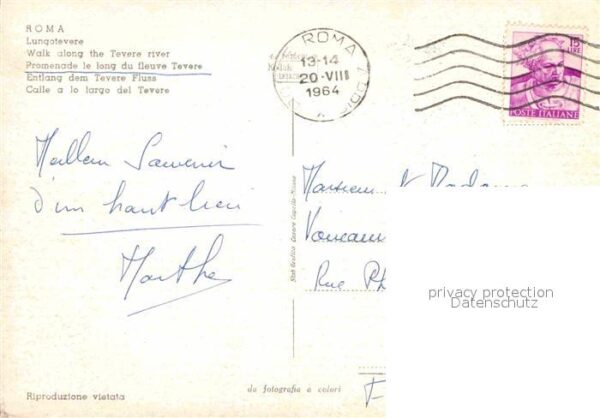 ROMA
Lungotevere
Walk along the Tevere river
Promenade le long du fleuve Tevere
Entlang dem Tevere Fluss
Calle a lo largo del Tevere
ROMA
13-14
20·VIII
1964
15
LIRE
POSTE ITALIANE
Meilleur Souvenir
d'un haut lieu
Marthe
Monsieur et Madame
Rue Ph
privacy protection
Datenschutz
F
da fotografia a colori
Riproduzione vietata